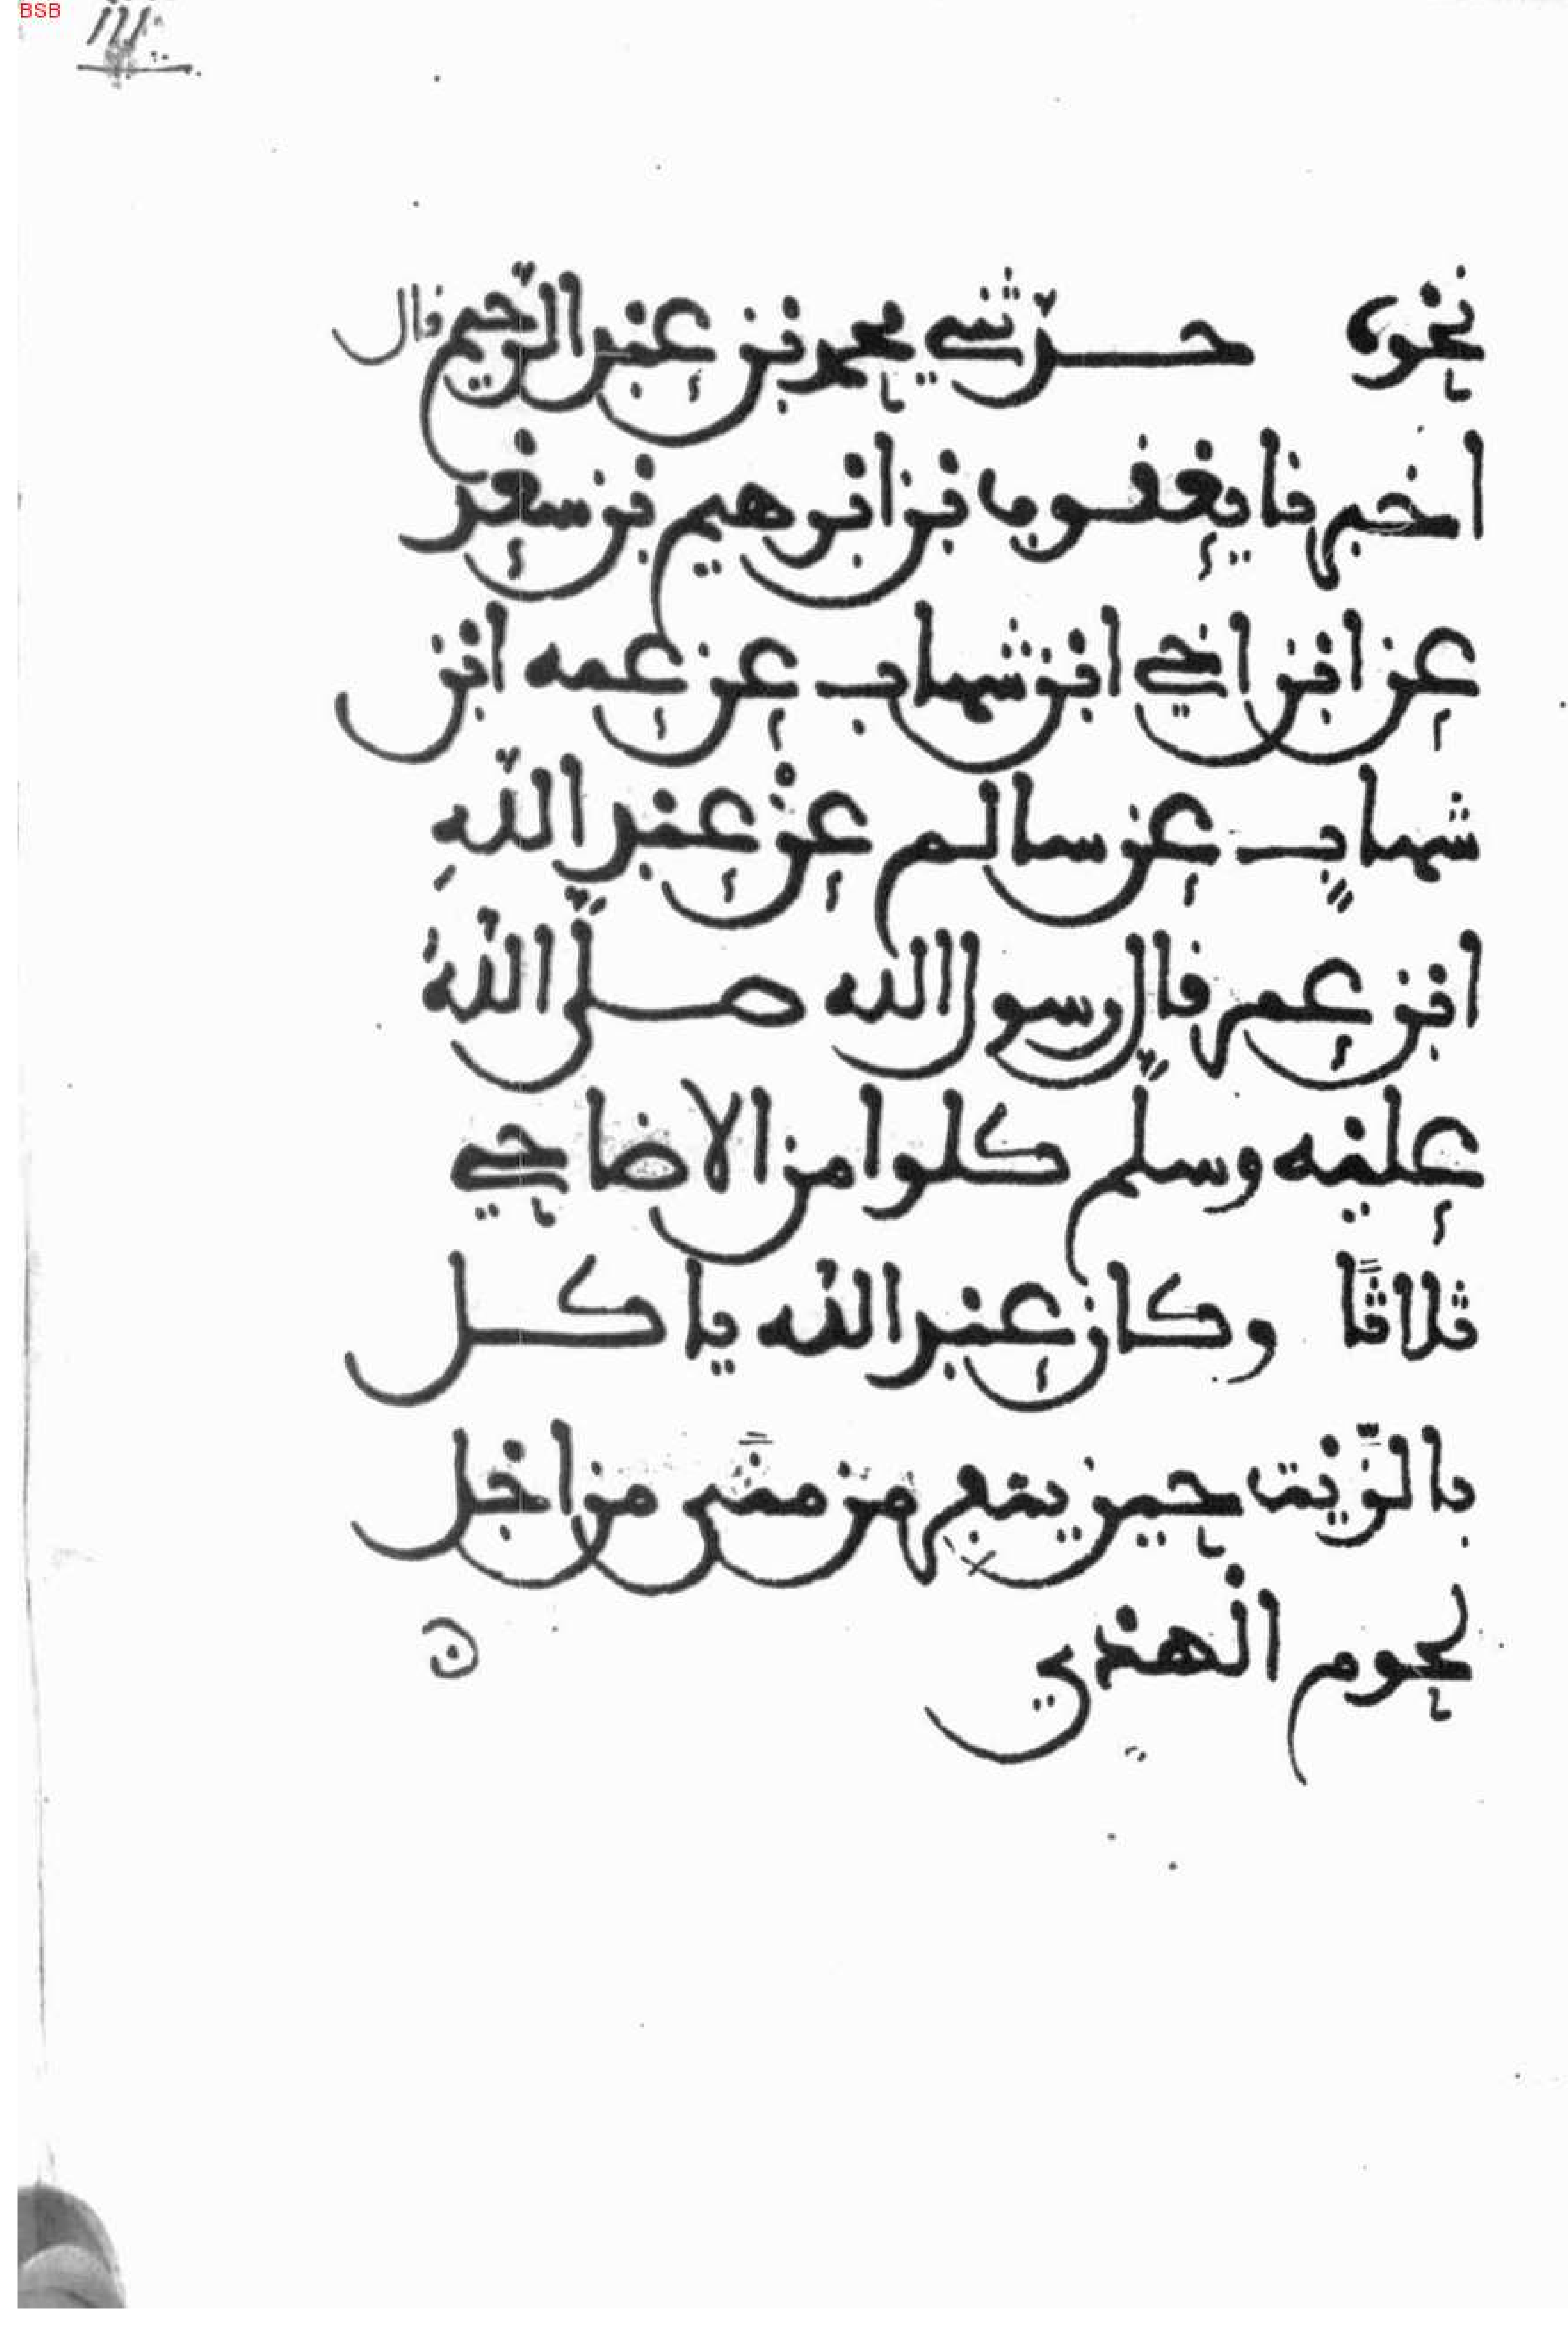 BSB
نحوه حدثني محمد بن عبد الرحيم قال
اخبرنا يعقوب بن ابرهيم بن سعد
عن ابن اخي ابن شهاب عن عمه ابن
شهاب عن سالم عن عبد اللهِ
ابن عمر قال رسول الله صلّى اللهُ
عليه وسلّم كلوا من الاضاحي
ثلاثًا وكان عبد الله ياكل
بالزّيت حين ينفر من منًى من اجل
لحوم الهدي